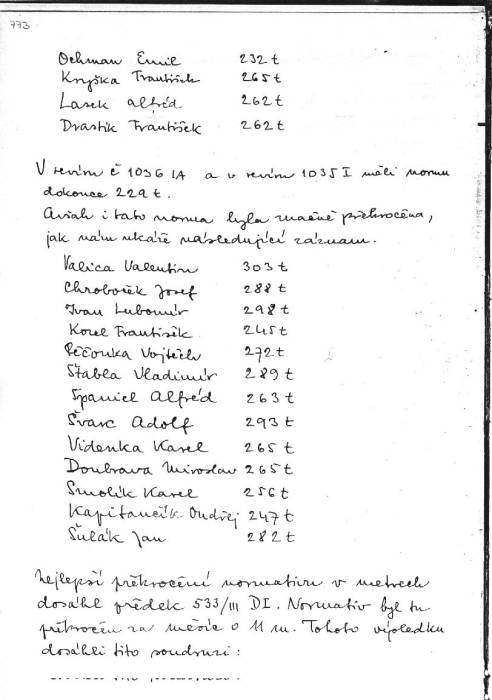 773
Ochman Emil 232 t
Kryška František 265 t
Lasek Alfréd 262 t
Drastik František 262 t
V revíru č 1036 IA a v revíru 1035 I měli normu
dokonce 229 t.
Avšak i tato norma byla značně překročena,
jak nám ukáže následující záznam.
Valica Valentin 303 t
Chroboček Josef 288 t
Ivan Lubomír 298 t
Korel František 245 t
Pečonka Vojtěch 272 t
Štabla Vladimír 289 t
Španiel Alfréd 263 t
Švarc Adolf 293 t
Videnka Karel 265 t
Doubrava Miroslav 265 t
Smolík Karel 256 t
Kapitančík Ondřej 247 t
Šulák Jan 282 t
Nejlepší překročení normativu v metrech
dosáhl předek 533/III DI. Normativ byl tu
překročen za měsíc o 11 m. Tohoto výsledku
dosáhli tito soudruzi: